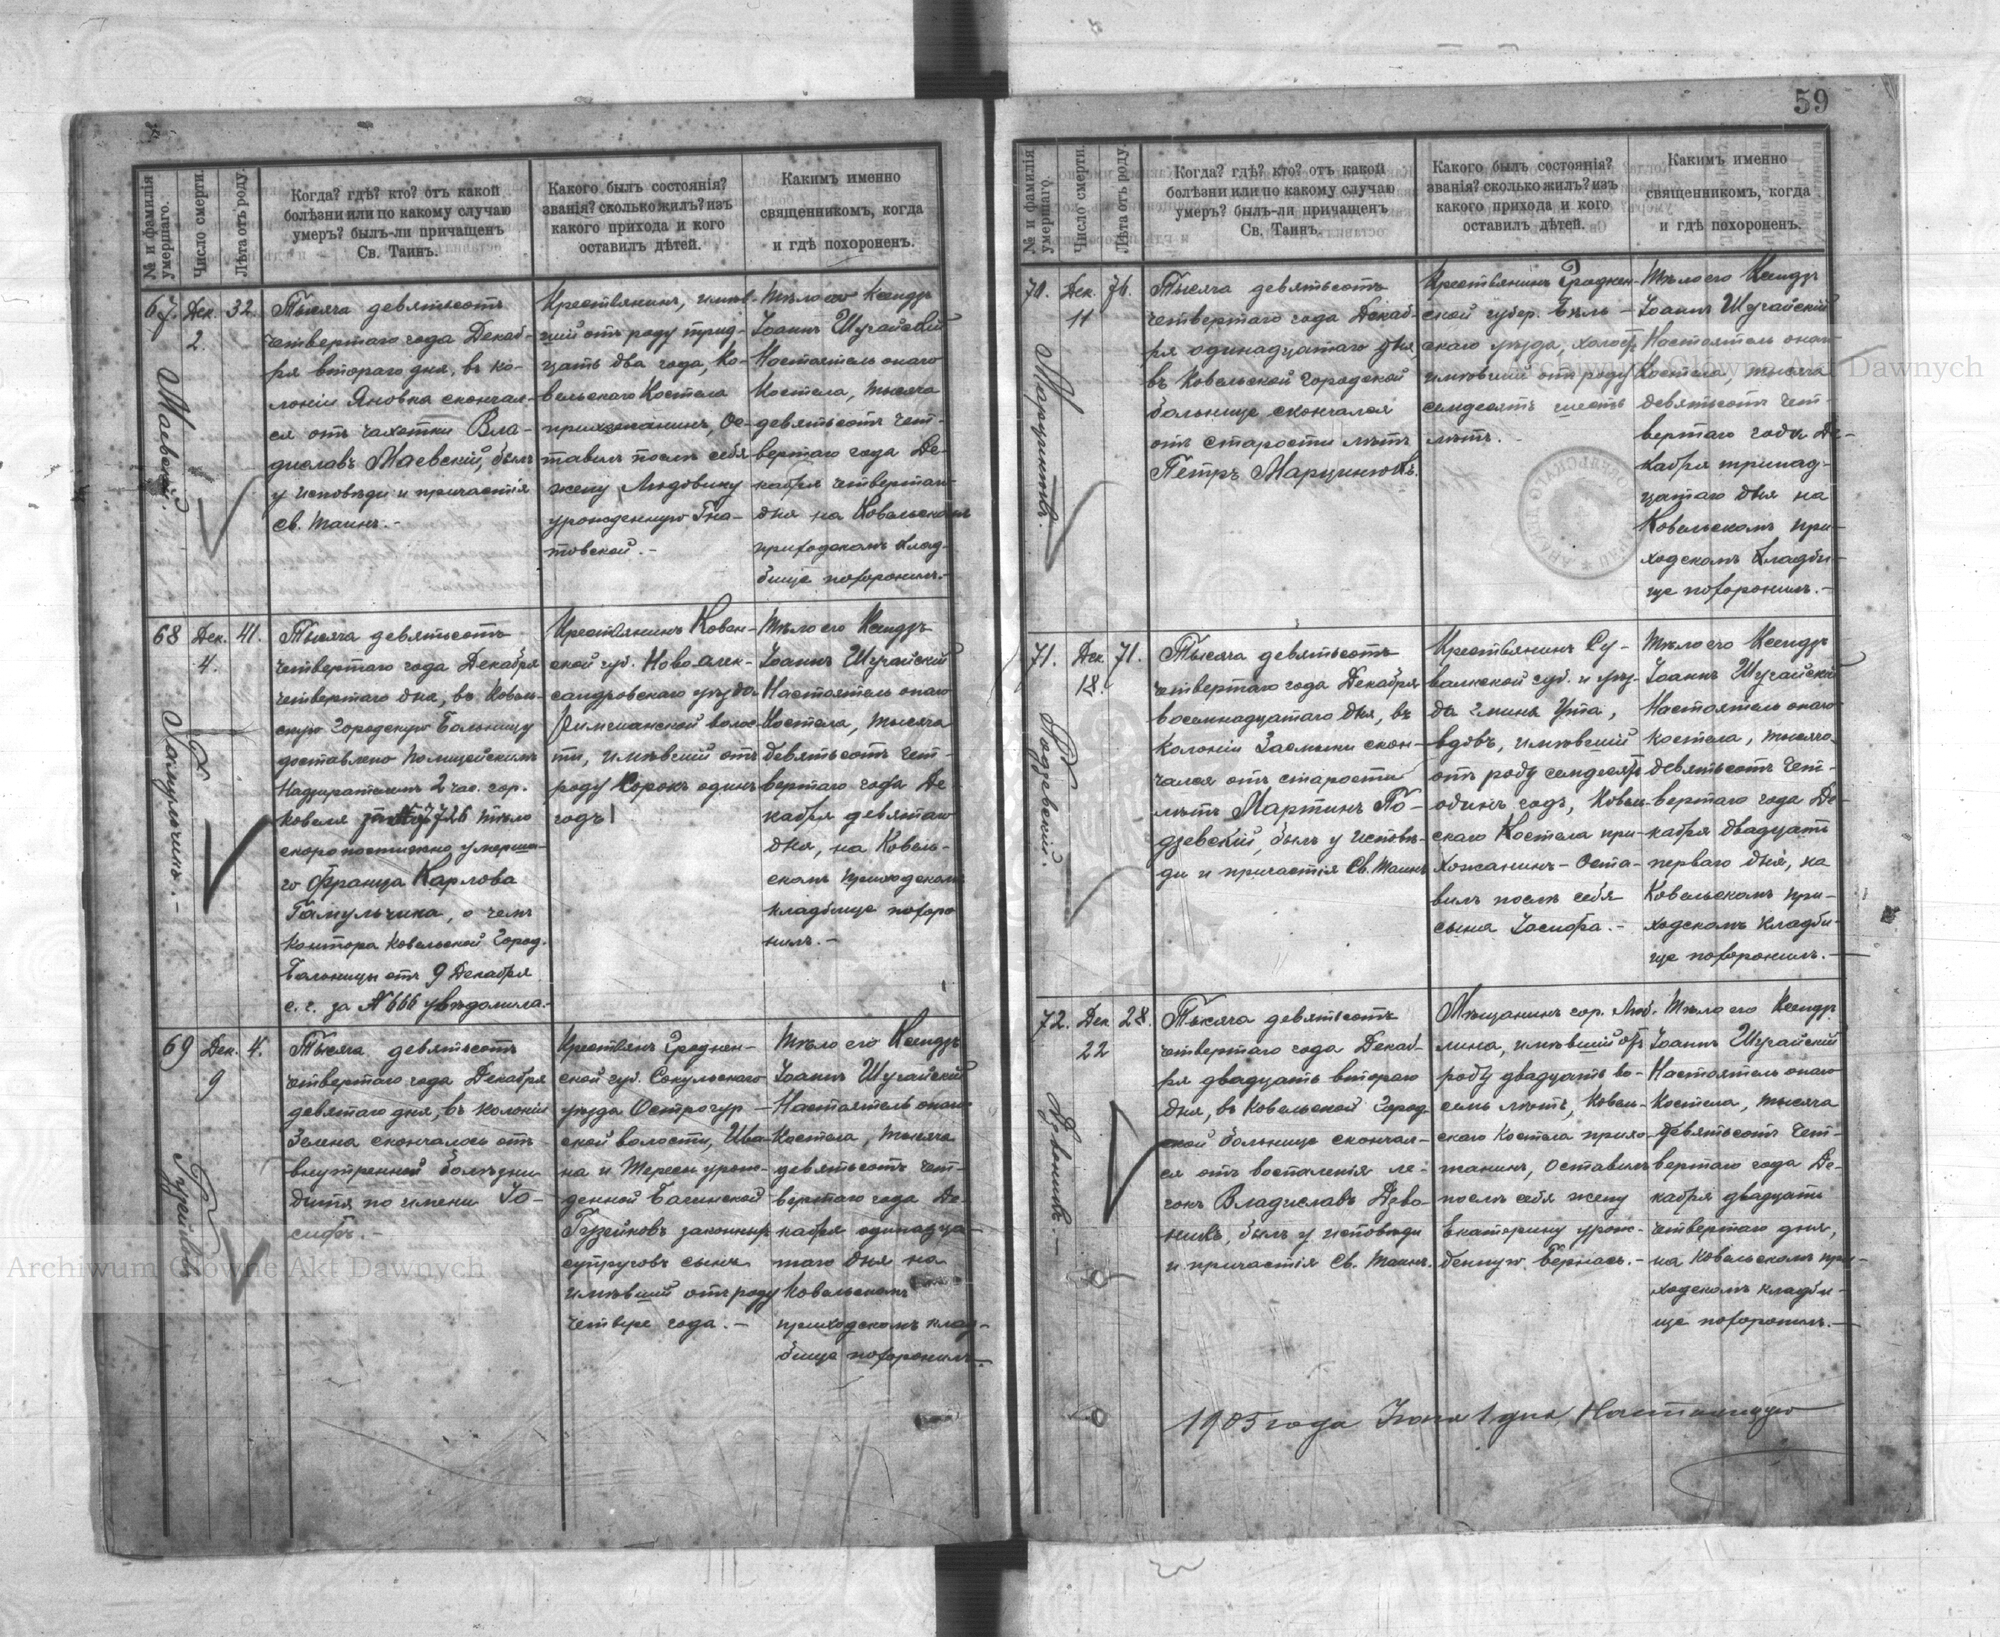 59
№ и фамилія умершаго.
Число смерти.
Лѣта отъ роду.
Когда? гдѣ? кто? отъ какой
болѣзни или по какому случаю
умеръ? былъ-ли причащенъ
Св. Таинъ.
Какого былъ состоянія?
званія? сколько жилъ? изъ
какого прихода и кого
оставилъ дѣтей.
Какимъ именно
священникомъ, когда
и гдѣ похороненъ.
67.
Маевскій.
Дек.
2.
32.
Тысяча девятьсотъ
четвертаго года Декаб-
ря втораго дня, въ ко-
лоніи Яновка скончал-
ся отъ чахотки Вла-
диславъ Маевскій, былъ
у исповѣди и причастія
Св. Таинъ.-
Крестьянинъ, имѣв-
шій отъ роду трид-
цать два года, Ко-
вельскаго Костела
прихожанинъ, Ос-
тавилъ послѣ себя
жену Людовику
урожденную Гна-
товской.-
Тѣло его Ксендзъ
Іоаннъ Шугайскій
Настоятель онаго
Костела, тысяча
девятьсотъ чет-
вертаго года Де-
кабря четвертаго
дня на Ковельскомъ
приходскомъ клад-
бищѣ похоронилъ.-
68
Гамульчинъ.-
Дек.
4.
41.
Тысяча девятьсотъ
четвертаго года Декабря
четвертаго дня, въ Ковель-
скую Городскую Больницу
доставлено Полицейскимъ
Надзирателемъ 2 час. гор.
Ковеля за № 7726 тѣло
скоропостижно умерша-
го Франца Карлова
Гамульчина, о чемъ
контора Ковельской Город.
Больницы отъ 9 Декабря
с. г. за № 666 увѣдомила.-
Крестьянинъ Ковен-
ской губ. Новоалек-
сандровскаго уѣзда
Римшанской волос-
ти, имѣвшій отъ
роду сорокъ одинъ
годъ
Тѣло его Ксендзъ
Іоаннъ Шугайскій
Настоятель онаго
Костела, тысяча
девятьсотъ чет-
вертаго года Де-
кабря девятаго
дня, на Ковель-
скомъ приходскомъ
кладбищѣ похоро
нилъ.-
69
Гузейковъ
Дек.
9
4.
Тысяча девятьсотъ
четвертаго года Декабря
девятаго дня, въ колоніи
Зелена скончалось отъ
внутренной болѣзни
дитя по имени Іо-
сифъ.-
Крестьянъ Гроднен-
ской губ. Сокульскаго
уѣзда Острогур-
ской волости, Ива-
на и Тересы урож-
денной Багинской
Гузейковъ законныхъ
супруговъ сынъ
имѣвшій отъ роду
четыре года.-
Тѣло его Ксендзъ
Іоаннъ Шугайскій
Настоятель онаго
Костела, тысяча
девятьсотъ чет-
вертаго года Де-
кабря одинадца-
таго дня на
Ковельскомъ
приходскомъ клад-
бищѣ похоронилъ.-
№ и фамилія умершаго.
Число смерти.
Лѣта отъ роду.
Когда? гдѣ? кто? отъ какой
болѣзни или по какому случаю
умеръ? былъ-ли причащенъ
Св. Таинъ.
Какого былъ состоянія?
званія? сколько жилъ? изъ
какого прихода и кого
оставилъ дѣтей.
Какимъ именно
священникомъ, когда
и гдѣ похороненъ.
70.
Марцинюкъ.
Дек.
11
76.
Тысяча девятьсотъ
четвертаго года Декаб-
ря одинадцатаго дня,
въ Ковельской городской
больницѣ скончался
отъ старости лѣтъ
Петръ Марцинюкъ.
Крестьянинъ Гроднен-
ской губер. Бѣль-
скаго уѣзда, холост.
имѣвшій отъ роду
семдесятъ шесть
лѣтъ.-
Тѣло его Ксендзъ
Іоаннъ Шугайскій
Настоятель онаго
Костела, тысяча
девятьсотъ чет-
вертаго года Де-
кабря тринад-
цатаго дня на
Ковельскомъ при-
ходскомъ кладби-
щѣ похоронилъ.-
71.
Подзевскій.
Дек.
18.
71.
Тысяча девятьсотъ
четвертаго года Декабря
восемнадцатаго дня, въ
колоніи Засмыки скон-
чался отъ старости
лѣтъ Мартинъ По-
дзевскій, былъ у исповѣ-
ди и причастія Св. Таинъ
Крестьянинъ Су-
валкской губ. и уѣз-
да гмины Ута,
вдовъ, имѣвшій
отъ роду семдесятъ
одинъ годъ, Ковель-
скаго Костела при-
хожанинъ- Оста-
вилъ послѣ себя
сына Іосифа.-
Тѣло его Ксендзъ
Іоаннъ Шугайскій
Настоятель онаго
Костела, тысяча
девятьсотъ чет-
вертаго года Де-
кабря двадцать
перваго дня, на
Ковельскомъ при-
ходскомъ кладби-
щѣ похоронилъ.-
72.
Дзвоникъ.-
Дек
22
28.
Тысяча девятьсотъ
четвертаго года Декаб-
ря двадцать втораго
дня, въ Ковельской Город
ской больницѣ скончал-
ся отъ воспаленія ле-
гокъ Владиславъ Дзво-
никъ, былъ у исповѣди
и причастія Св. Таинъ.
Мѣщанинъ гор. Люб-
лина, имѣвшій отъ
роду двадцать во-
семь лѣтъ, Ковель-
скаго Костела прихо-
жанинъ, Оставилъ
послѣ себя жену
Екатерину урож-
денную Бернась.-
Тѣло его Ксендзъ
Іоаннъ Шугайскій
Настоятель онаго
Костела, тысяча
девятьсотъ чет-
вертаго года Де-
кабря двадцать
четвертаго дня,
на Ковельскомъ при-
ходскомъ кладби-
щѣ похоронилъ.-
1905 года Іюня 1 дня
Archiwum Główne Akt Dawnych
Archiwum Główne Akt Dawnych